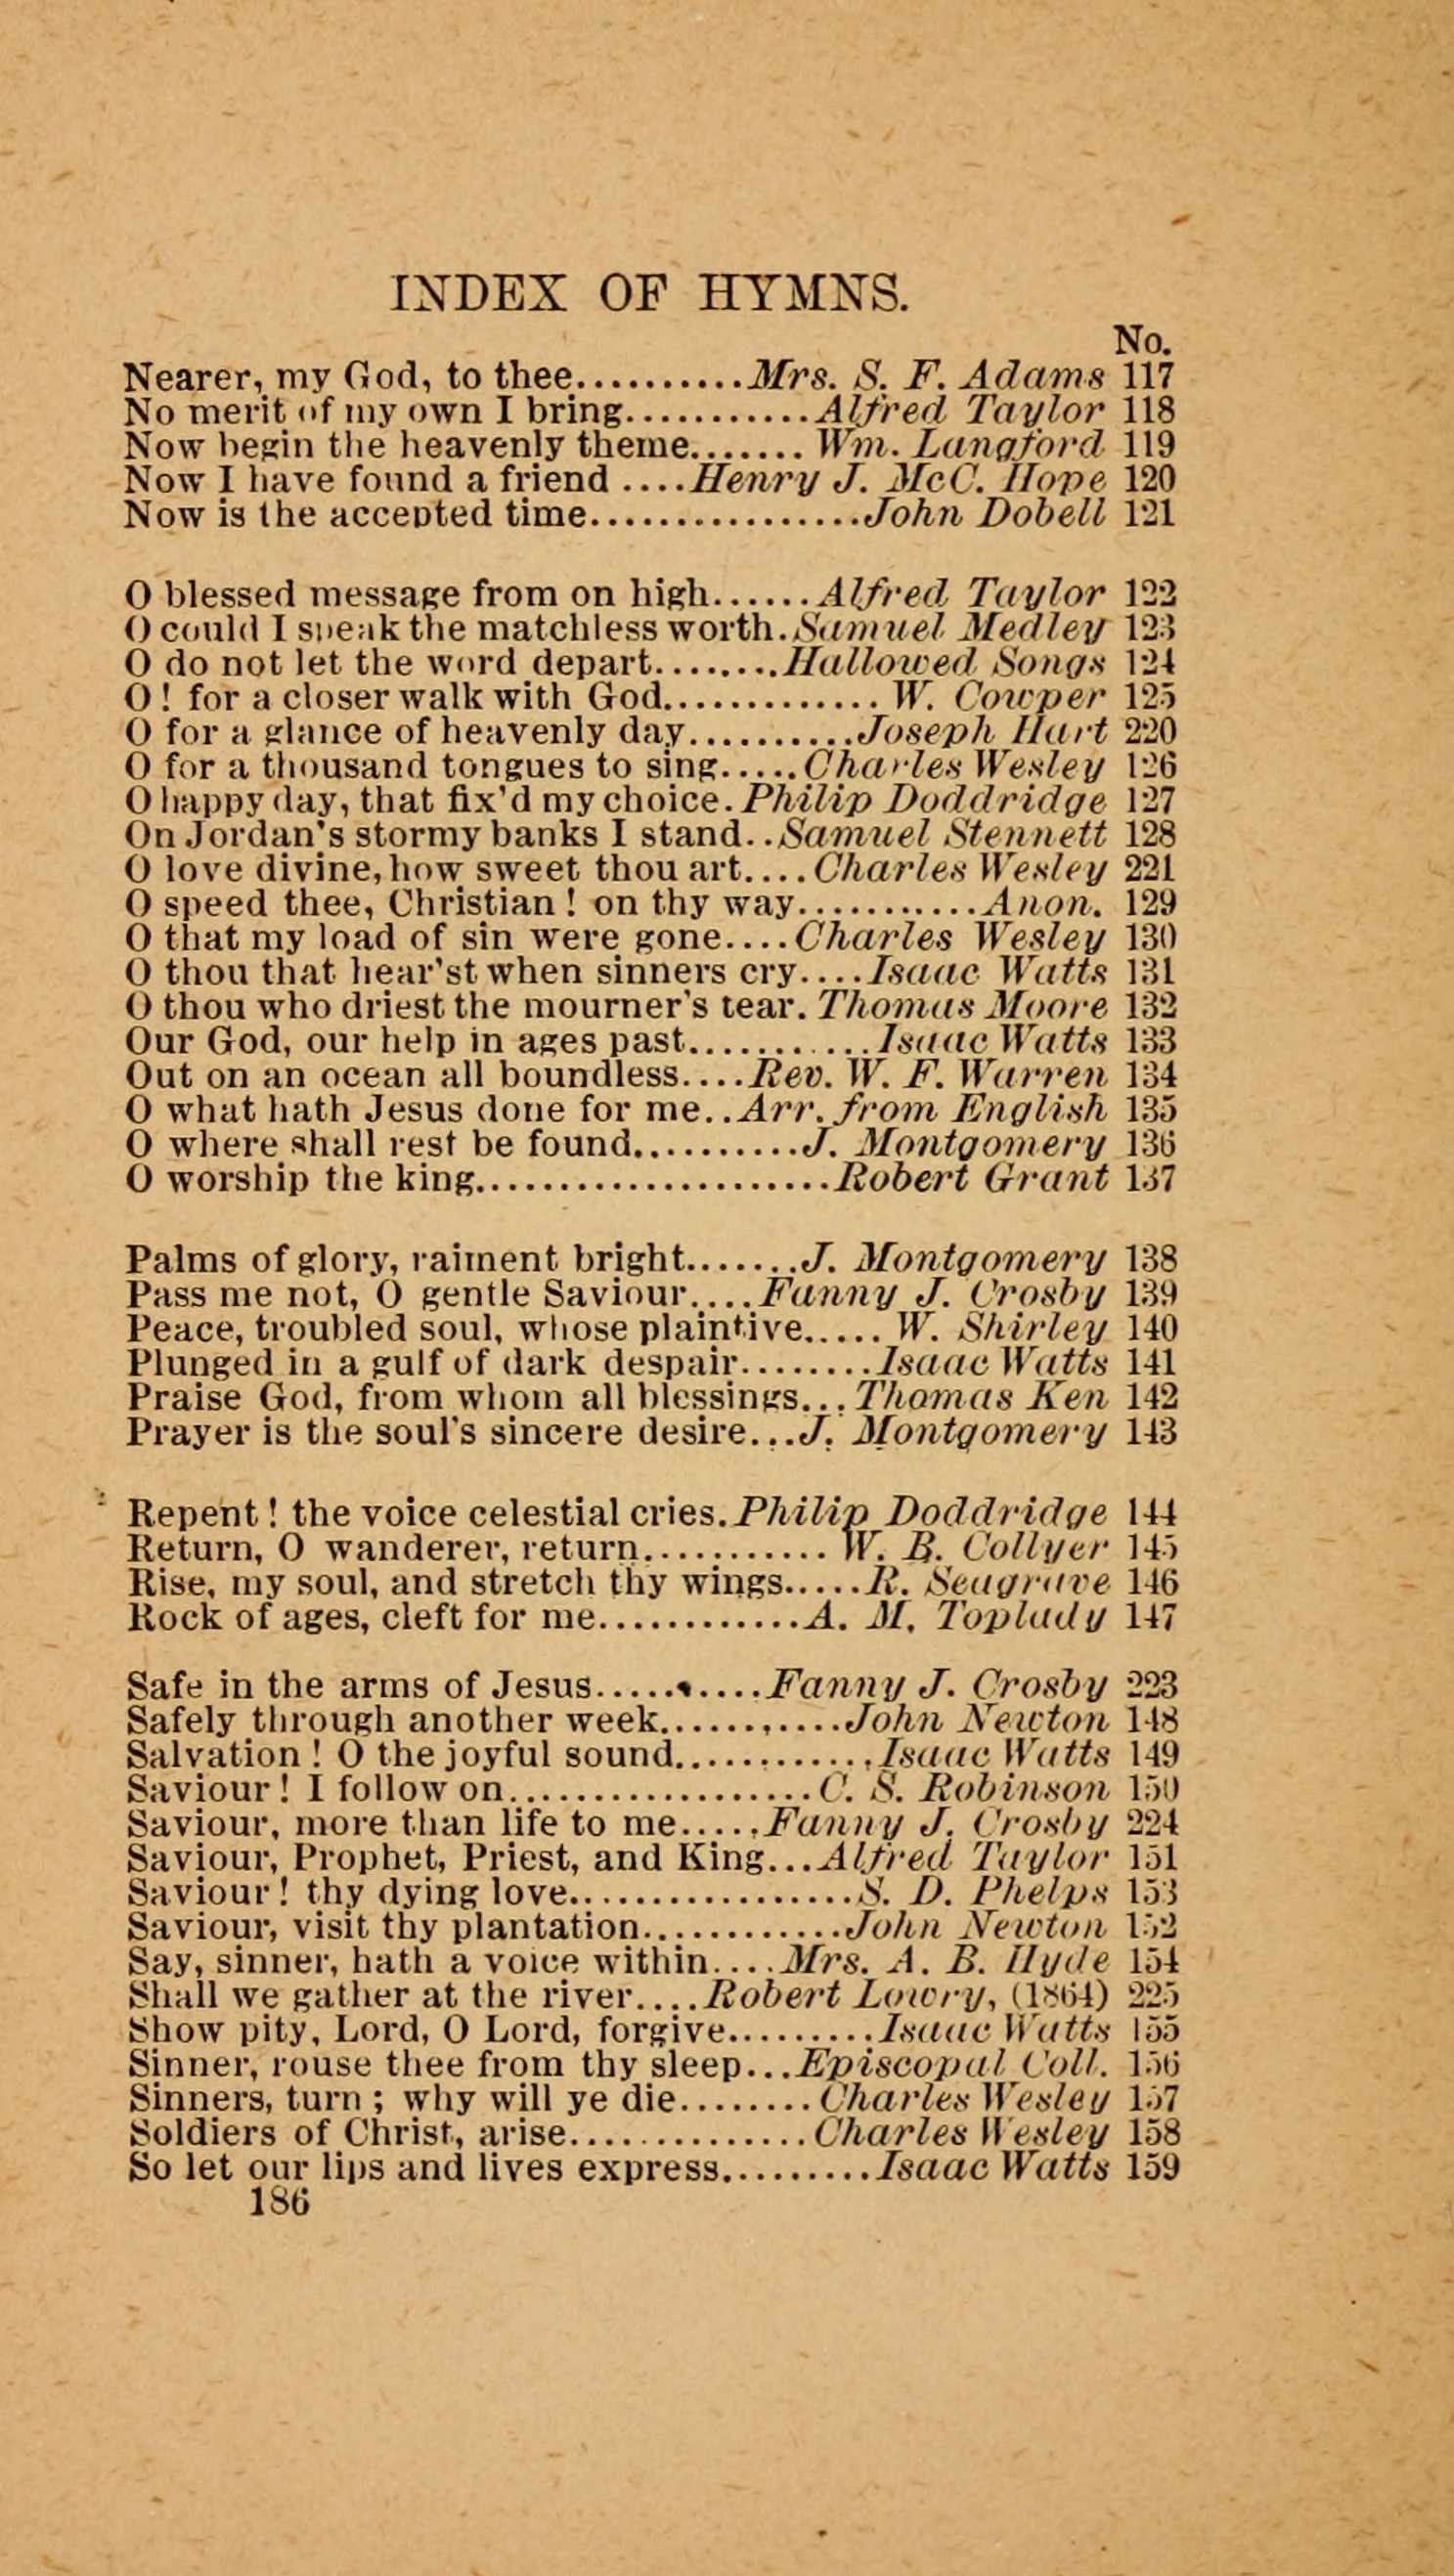 INDEX OF HYMNS.
No.
Nearer, my God, to thee...........Mrs. S. F. Adams 117
No merit of my own I bring............Alfred Taylor 118
Now begin the heavenly theme....... Wm. Langford 119
Now I have found a friend ....Henry J. McC. Hope 120
Now is the accepted time.................John Dobell 121
O blessed message from on high......Alfred Taylor 122
O could I speak the matchless worth.Samuel Medley 123
O do not let the word depart........Hallowed Songs 124
O! for a closer walk with God.............. W. Cowper 125
O for a glance of heavenly day..........Joseph Hart 220
O for a thousand tongues to sing.....Charles Wesley 126
O happy day, that fix'd my choice.Philip Doddridge 127
On Jordan's stormy banks I stand..Samuel Stennett 128
O love divine, how sweet thou art....Charles Wesley 221
O speed thee, Christian! on thy way............Anon. 129
O that my load of sin were gone....Charles Wesley 130
O thou that hear'st when sinners cry....Isaac Watts 131
O thou who driest the mourner's tear. Thomas Moore 132
Our God, our help in ages past............Isaac Watts 133
Out on an ocean all boundless....Rev. W. F. Warren 134
O what hath Jesus done for me..Arr. from English 135
O where shall rest be found..........J. Montgomery 136
O worship the king......................Robert Grant 137
Palms of glory, raiment bright.......J. Montgomery 138
Pass me not, O gentle Saviour....Fanny J. Crosby 139
Peace, troubled soul, whose plaintive..... W. Shirley 140
Plunged in a gulf of dark despair........Isaac Watts 141
Praise God, from whom all blessings...Thomas Ken 142
Prayer is the soul's sincere desire...J. Montgomery 143
Repent! the voice celestial cries.Philip Doddridge 144
Return, O wanderer, return............ W. B. Collyer 145
Rise, my soul, and stretch thy wings.....R. Seagrave 146
Rock of ages, cleft for me.............A. M. Toplady 147
Safe in the arms of Jesus..........Fanny J. Crosby 223
Safely through another week...........John Newton 148
Salvation! O the joyful sound.............Isaac Watts 149
Saviour! I follow on...................C. S. Robinson 150
Saviour, more than life to me.....Fanny J. Crosby 224
Saviour, Prophet, Priest, and King...Alfred Taylor 151
Saviour! thy dying love.................S. D. Phelps 153
Saviour, visit thy plantation.............John Newton 152
Say, sinner, hath a voice within....Mrs. A. B. Hyde 154
Shall we gather at the river....Robert Lowry, (1864) 225
Show pity, Lord, O Lord, forgive.........Isaac Watts 155
Sinner, rouse thee from thy sleep...Episcopal Coll. 156
Sinners, turn; why will ye die........Charles Wesley 157
Soldiers of Christ, arise...............Charles Wesley 158
So let our lips and lives express..........Isaac Watts 159
186